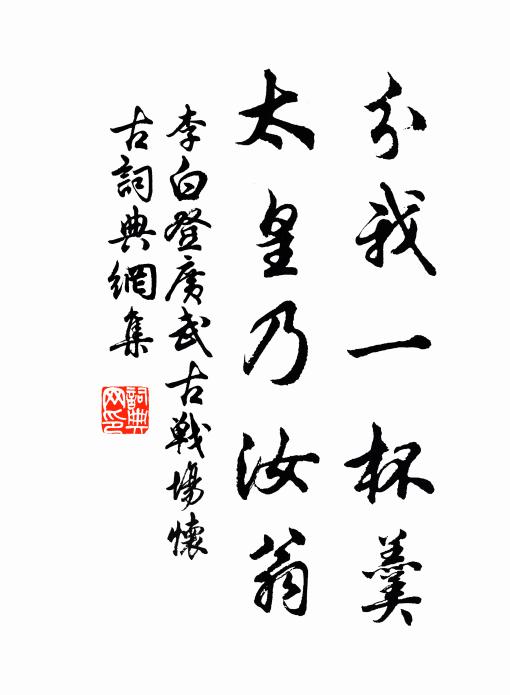 分我一杯羹
太皇乃汝翁
李白登廣武古戰場懷
古詞典網集
詞典網印